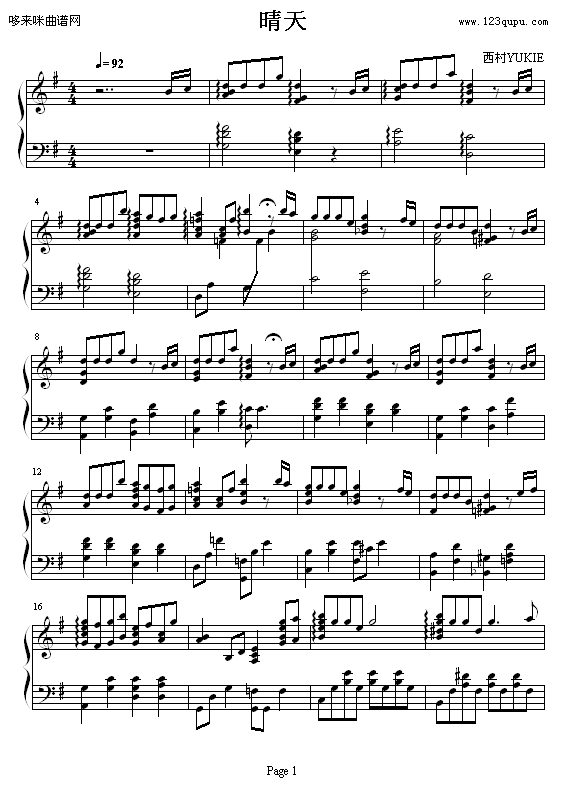 哆来咪曲谱网
晴天
www.123qupu.com
西村YUKIE
=92
4
8
12
16
Page 1